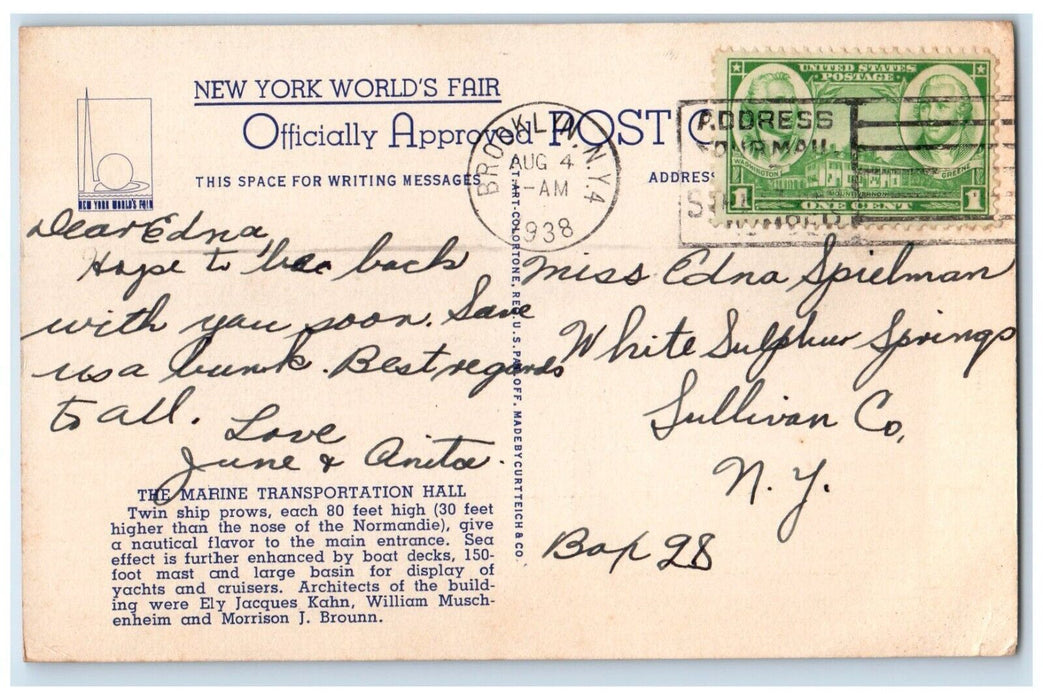 NEW YORK WORLD'S FAIR
Officially Approved POST C
THIS SPACE FOR WRITING MESSAGES
ADDRESS
NEW YORK WORLD'S FAIR
BROOKLYN, N.Y. 4
AUG 4
-AM
1938
ADDRESS
YOUR MAIL
UNITED STATES
POSTAGE
WASHINGTON
MOUNT VERNON
GREENE
1 ONE CENT 1
Dear Edna,
Hope to be back
with you soon. Save
us a bunk. Best regards
to all.
Love
June & Anita.
Miss Edna Spielman
White Sulphur Springs
Sullivan Co.
N. Y.
Box 28
C.T. ART-COLORTONE, REG. U.S. PAT. OFF. MADE BY CURT TEICH & CO.
THE MARINE TRANSPORTATION HALL
Twin ship prows, each 80 feet high (30 feet
higher than the nose of the Normandie), give
a nautical flavor to the main entrance. Sea
effect is further enhanced by boat decks, 150-
foot mast and large basin for display of
yachts and cruisers. Architects of the build-
ing were Ely Jacques Kahn, William Musch-
enheim and Morrison J. Brounn.